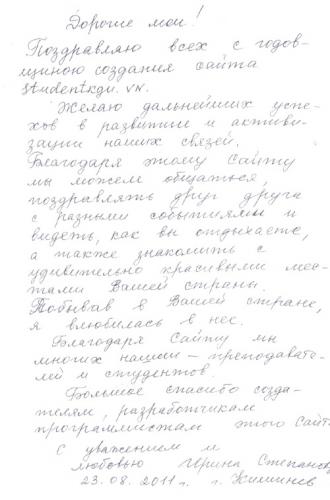 Дорогие мои!
Поздравляю всех с годов-
щиною создания сайта
studentkgu.vn.
Желаю дальнейших успе-
хов в развитии и активи-
зации наших связей.
Благодаря этому сайту
мы можем общаться,
поздравлять друг друга
с разными событиями и
видеть, как вы отдыхаете,
а также знакомить с
удивительно красивыми мес-
тами Вашей страны.
Побывав в Вашей стране,
я влюбилась в нее.
Благодаря сайту мы
многих нашли – преподавате-
лей и студентов.
Большое спасибо созда-
телям, разработчикам
программистам этого сайта
С уважением и
любовью Ирина Степановна
23.08.2011 г. г. Кишинев